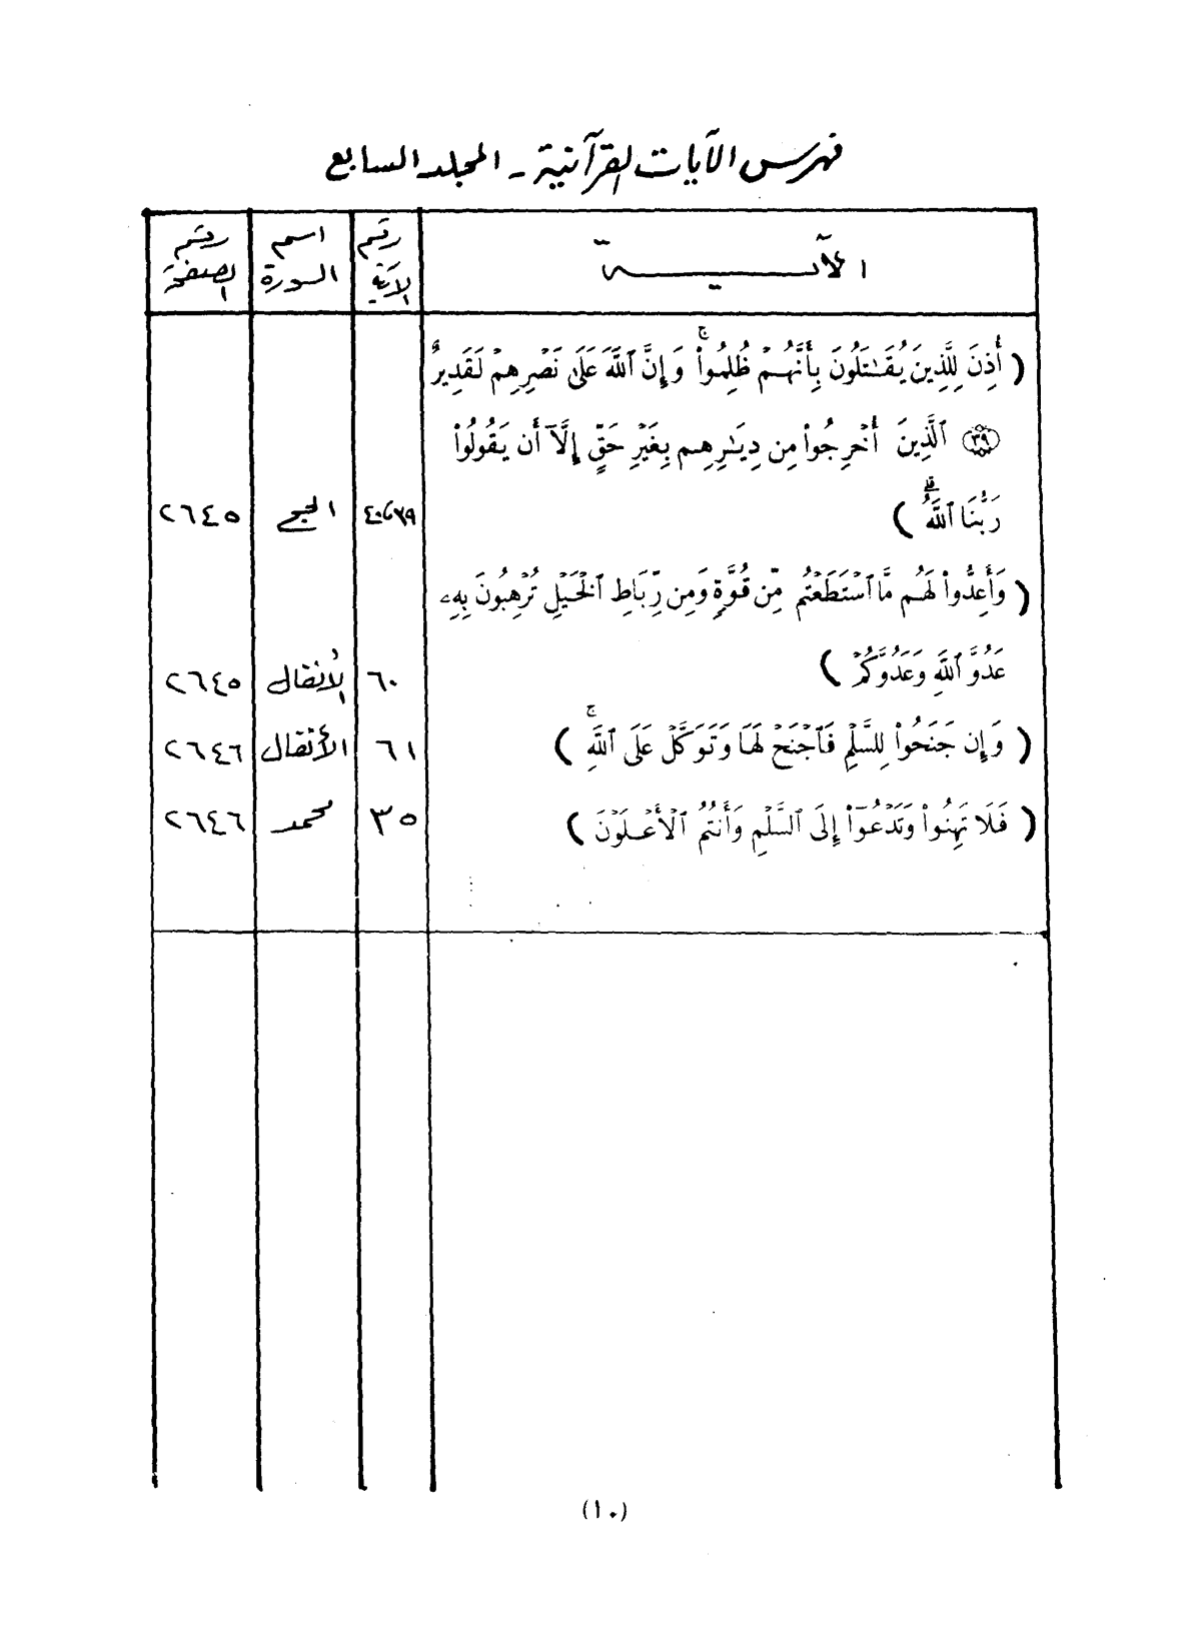 فهرس الآيات القرآنية - المجلد السابع
الآيـــة | رقم الآية | اسم السورة | رقم الصفحة
( أُذِنَ لِلَّذِينَ يُقَـٰتَلُونَ بِأَنَّهُمْ ظُلِمُوا۟ ۚ وَإِنَّ ٱللَّهَ عَلَىٰ نَصْرِهِمْ لَقَدِيرٌ
٣٩ ٱلَّذِينَ أُخْرِجُوا۟ مِن دِيَـٰرِهِم بِغَيْرِ حَقٍّ إِلَّآ أَن يَقُولُوا۟
رَبُّنَا ٱللَّهُ ۗ ) | ٣٩،٤٠ | الحج | ٢٦٤٥
( وَأَعِدُّوا۟ لَهُم مَّا ٱسْتَطَعْتُم مِّن قُوَّةٍ وَمِن رِّبَاطِ ٱلْخَيْلِ تُرْهِبُونَ بِهِۦ
عَدُوَّ ٱللَّهِ وَعَدُوَّكُمْ ) | ٦٠ | الأنفال | ٢٦٤٥
( وَإِن جَنَحُوا۟ لِلسَّلْمِ فَٱجْنَحْ لَهَا وَتَوَكَّلْ عَلَى ٱللَّهِ ۚ ) | ٦١ | الأنفال | ٢٦٤٦
( فَلَا تَهِنُوا۟ وَتَدْعُوٓا۟ إِلَى ٱلسَّلْمِ وَأَنتُمُ ٱلْأَعْلَوْنَ ) | ٣٥ | محمد | ٢٦٤٦
(١٠)